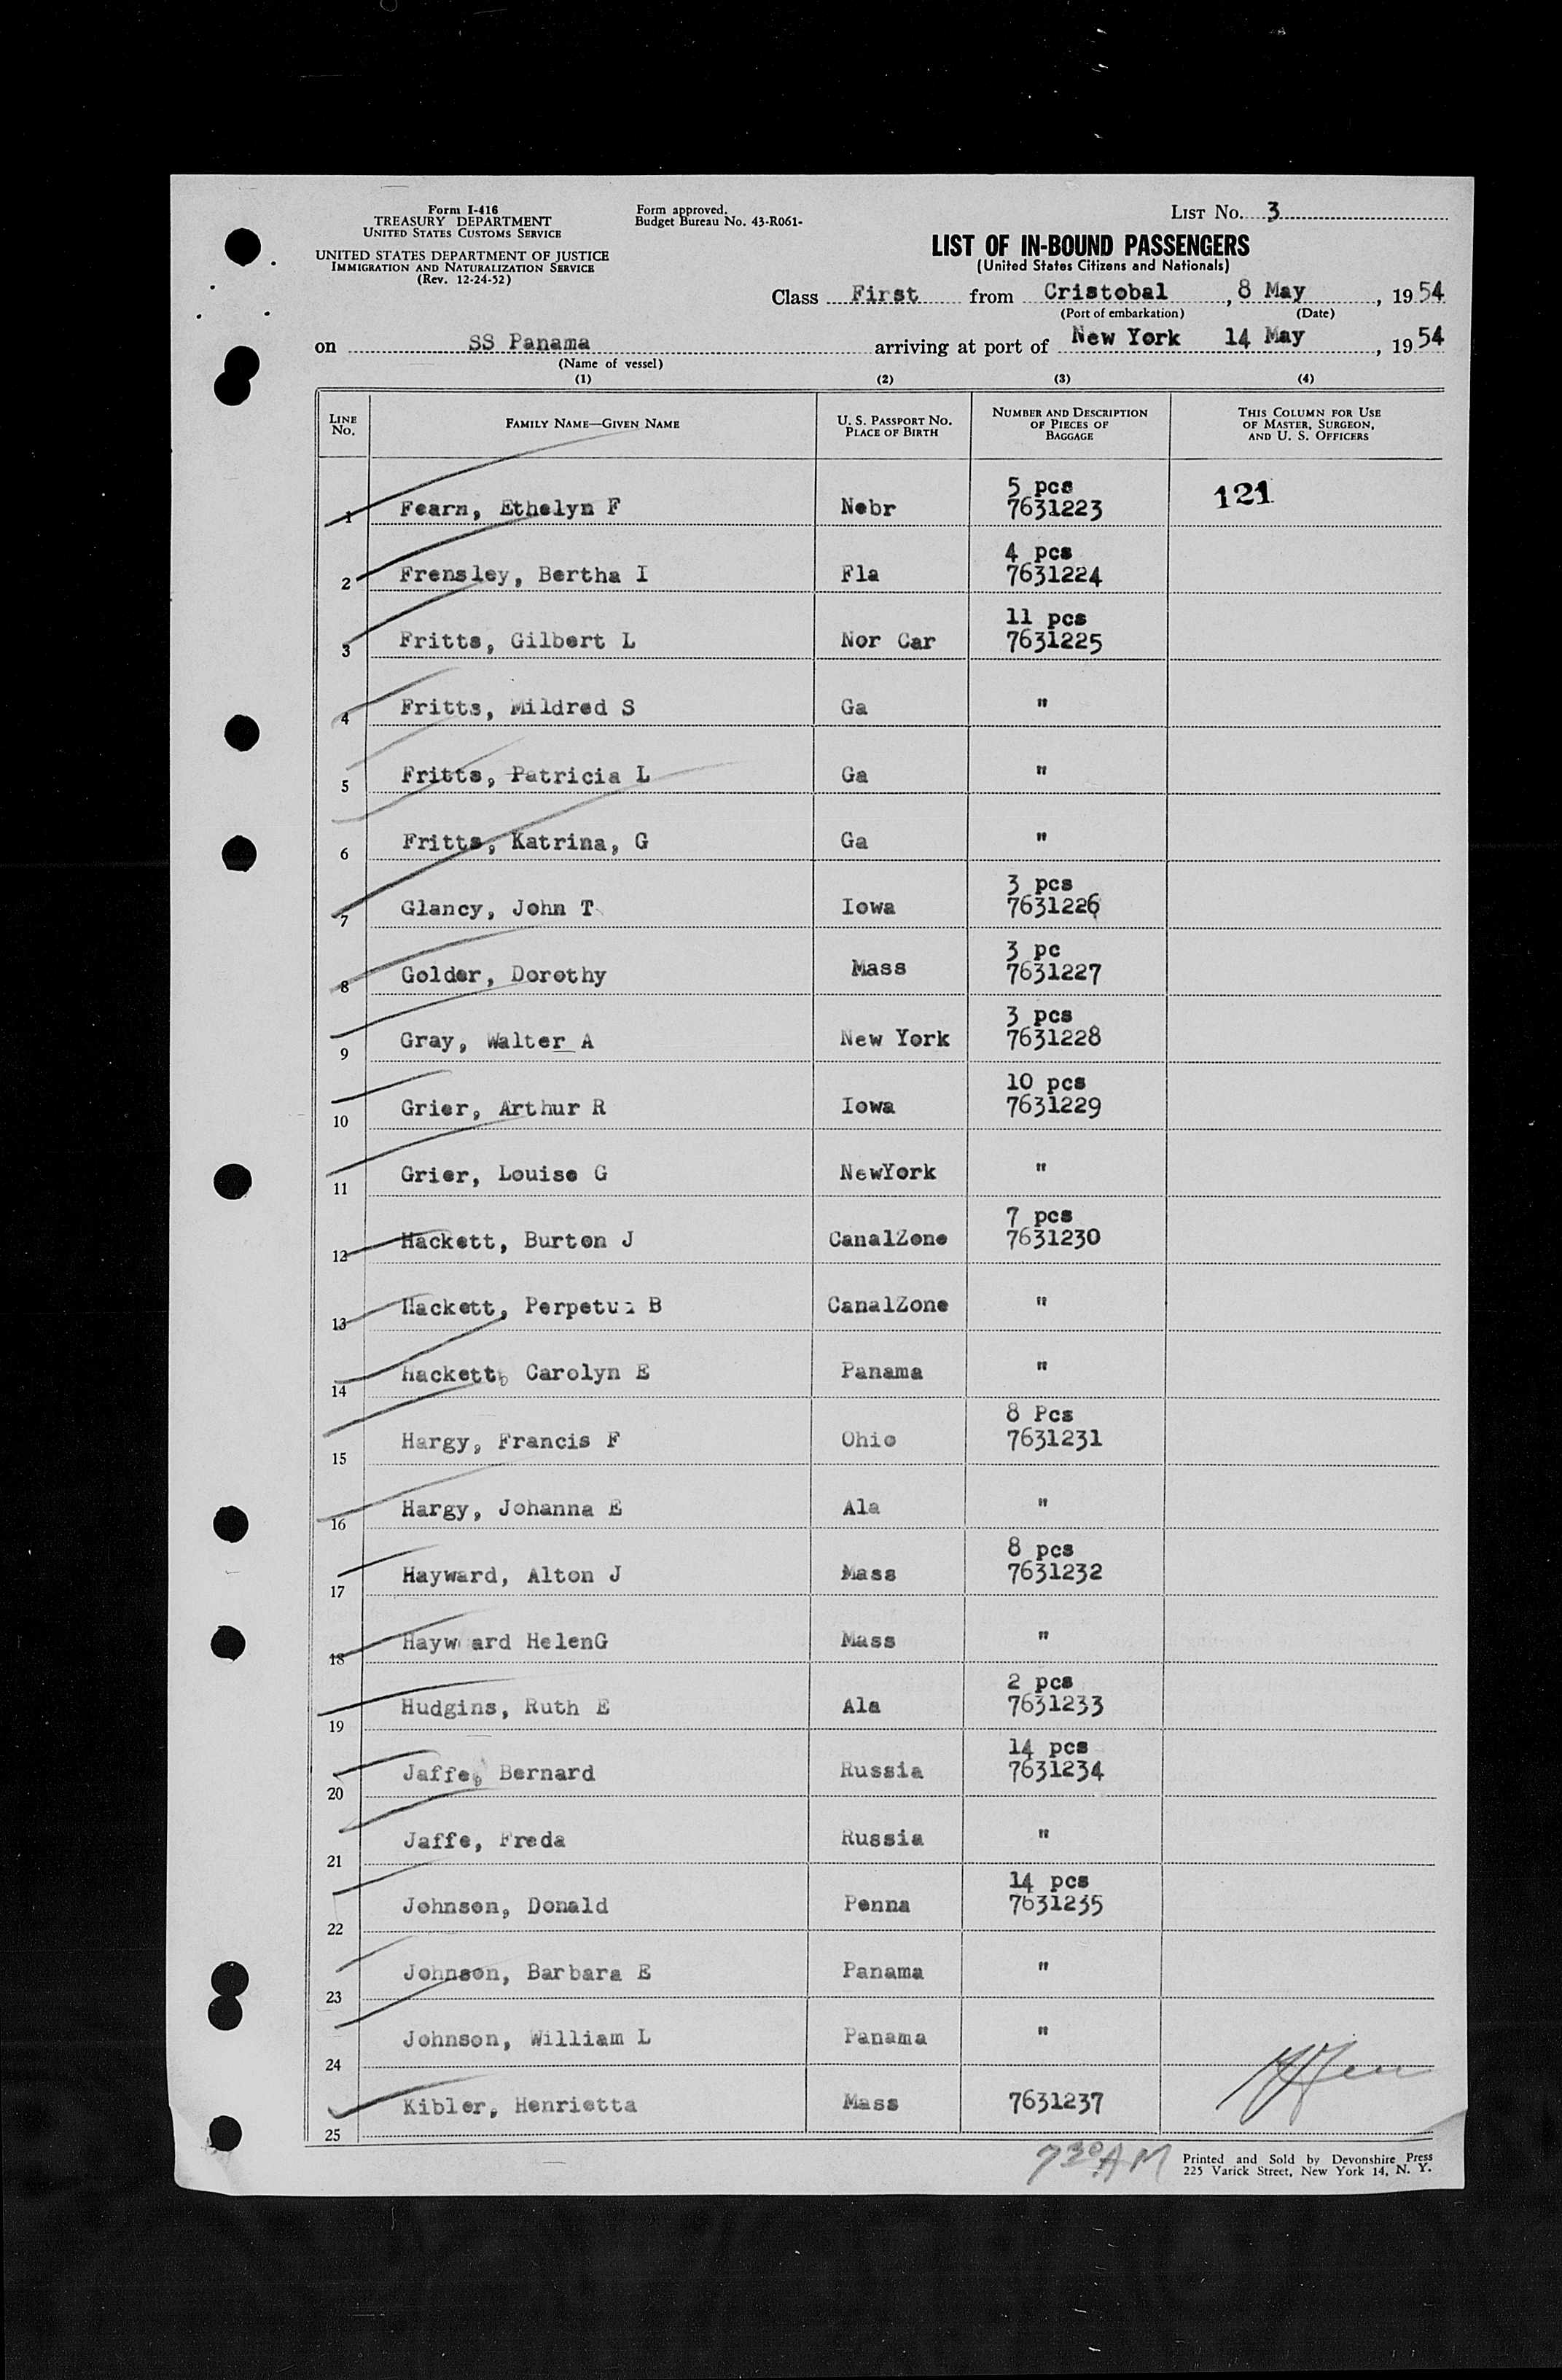 Form I-416
TREASURY DEPARTMENT
UNITED STATES CUSTOMS SERVICE
UNITED STATES DEPARTMENT OF JUSTICE
IMMIGRATION AND NATURALIZATION SERVICE
(Rev. 12-24-52)
Form approved.
Budget Bureau No. 43-R061-
LIST No. 3
LIST OF IN-BOUND PASSENGERS
(United States Citizens and Nationals)
Class First from Cristobal, 8 May, 1954
(Port of embarkation) (Date)
on SS Panama arriving at port of New York 14 May, 1954
(Name of vessel)
(1) (2) (3) (4)
LINE No. FAMILY NAME—GIVEN NAME U. S. PASSPORT NO. PLACE OF BIRTH NUMBER AND DESCRIPTION OF PIECES OF BAGGAGE THIS COLUMN FOR USE OF MASTER, SURGEON, AND U. S. OFFICERS
5 pcs
1 Fearn, Ethelyn F Nebr 7631223 121
4 pcs
2 Frensley, Bertha I Fla 7631224
11 pcs
3 Fritts, Gilbert L Nor Car 7631225
4 Fritts, Mildred S Ga "
5 Fritts, Patricia L Ga "
6 Fritts, Katrina, G Ga "
3 pcs
7 Glancy, John T Iowa 7631226
3 pc
8 Golder, Dorothy Mass 7631227
3 pcs
9 Gray, Walter A New York 7631228
10 pcs
10 Grier, Arthur R Iowa 7631229
11 Grier, Louise G NewYork "
7 pcs
12 Hackett, Burton J CanalZone 7631230
13 Hackett, Perpetua B CanalZone "
14 Hackett, Carolyn E Panama "
8 Pcs
15 Hargy, Francis F Ohio 7631231
16 Hargy, Johanna E Ala "
8 pcs
17 Hayward, Alton J Mass 7631232
18 Hayward HelenG Mass "
2 pcs
19 Hudgins, Ruth E Ala 7631233
14 pcs
20 Jaffe, Bernard Russia 7631234
21 Jaffe, Freda Russia "
14 pcs
22 Johnson, Donald Penna 7631235
23 Johnson, Barbara E Panama "
24 Johnson, William L Panama "
25 Kibler, Henrietta Mass 7631237
730 AM
Printed and Sold by Devonshire Press
225 Varick Street, New York 14, N. Y.